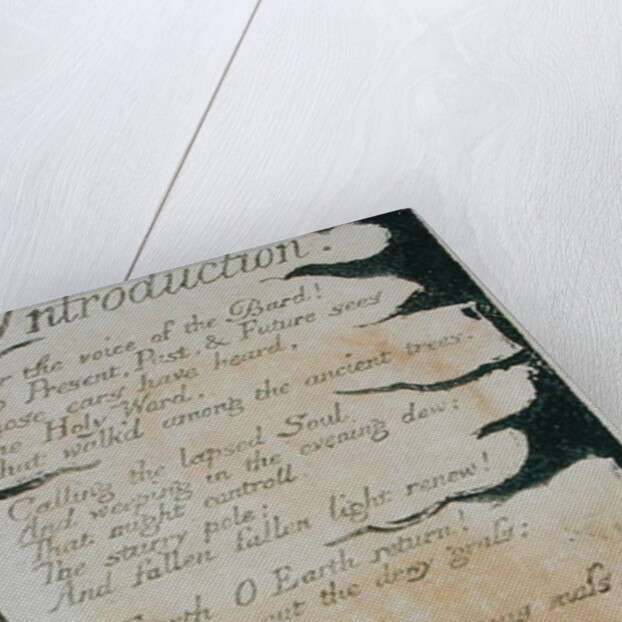 ntroduction.
r the voice of the Bard!
Present, Past, & Future sees
hose ears have heard,
he Holy Word,
hat walk'd among the ancient trees.
Calling the lapsed Soul
And weeping in the evening dew;
That might controll
The starry pole;
And fallen fallen light renew!
Earth O Earth return!
out the dewy grass;